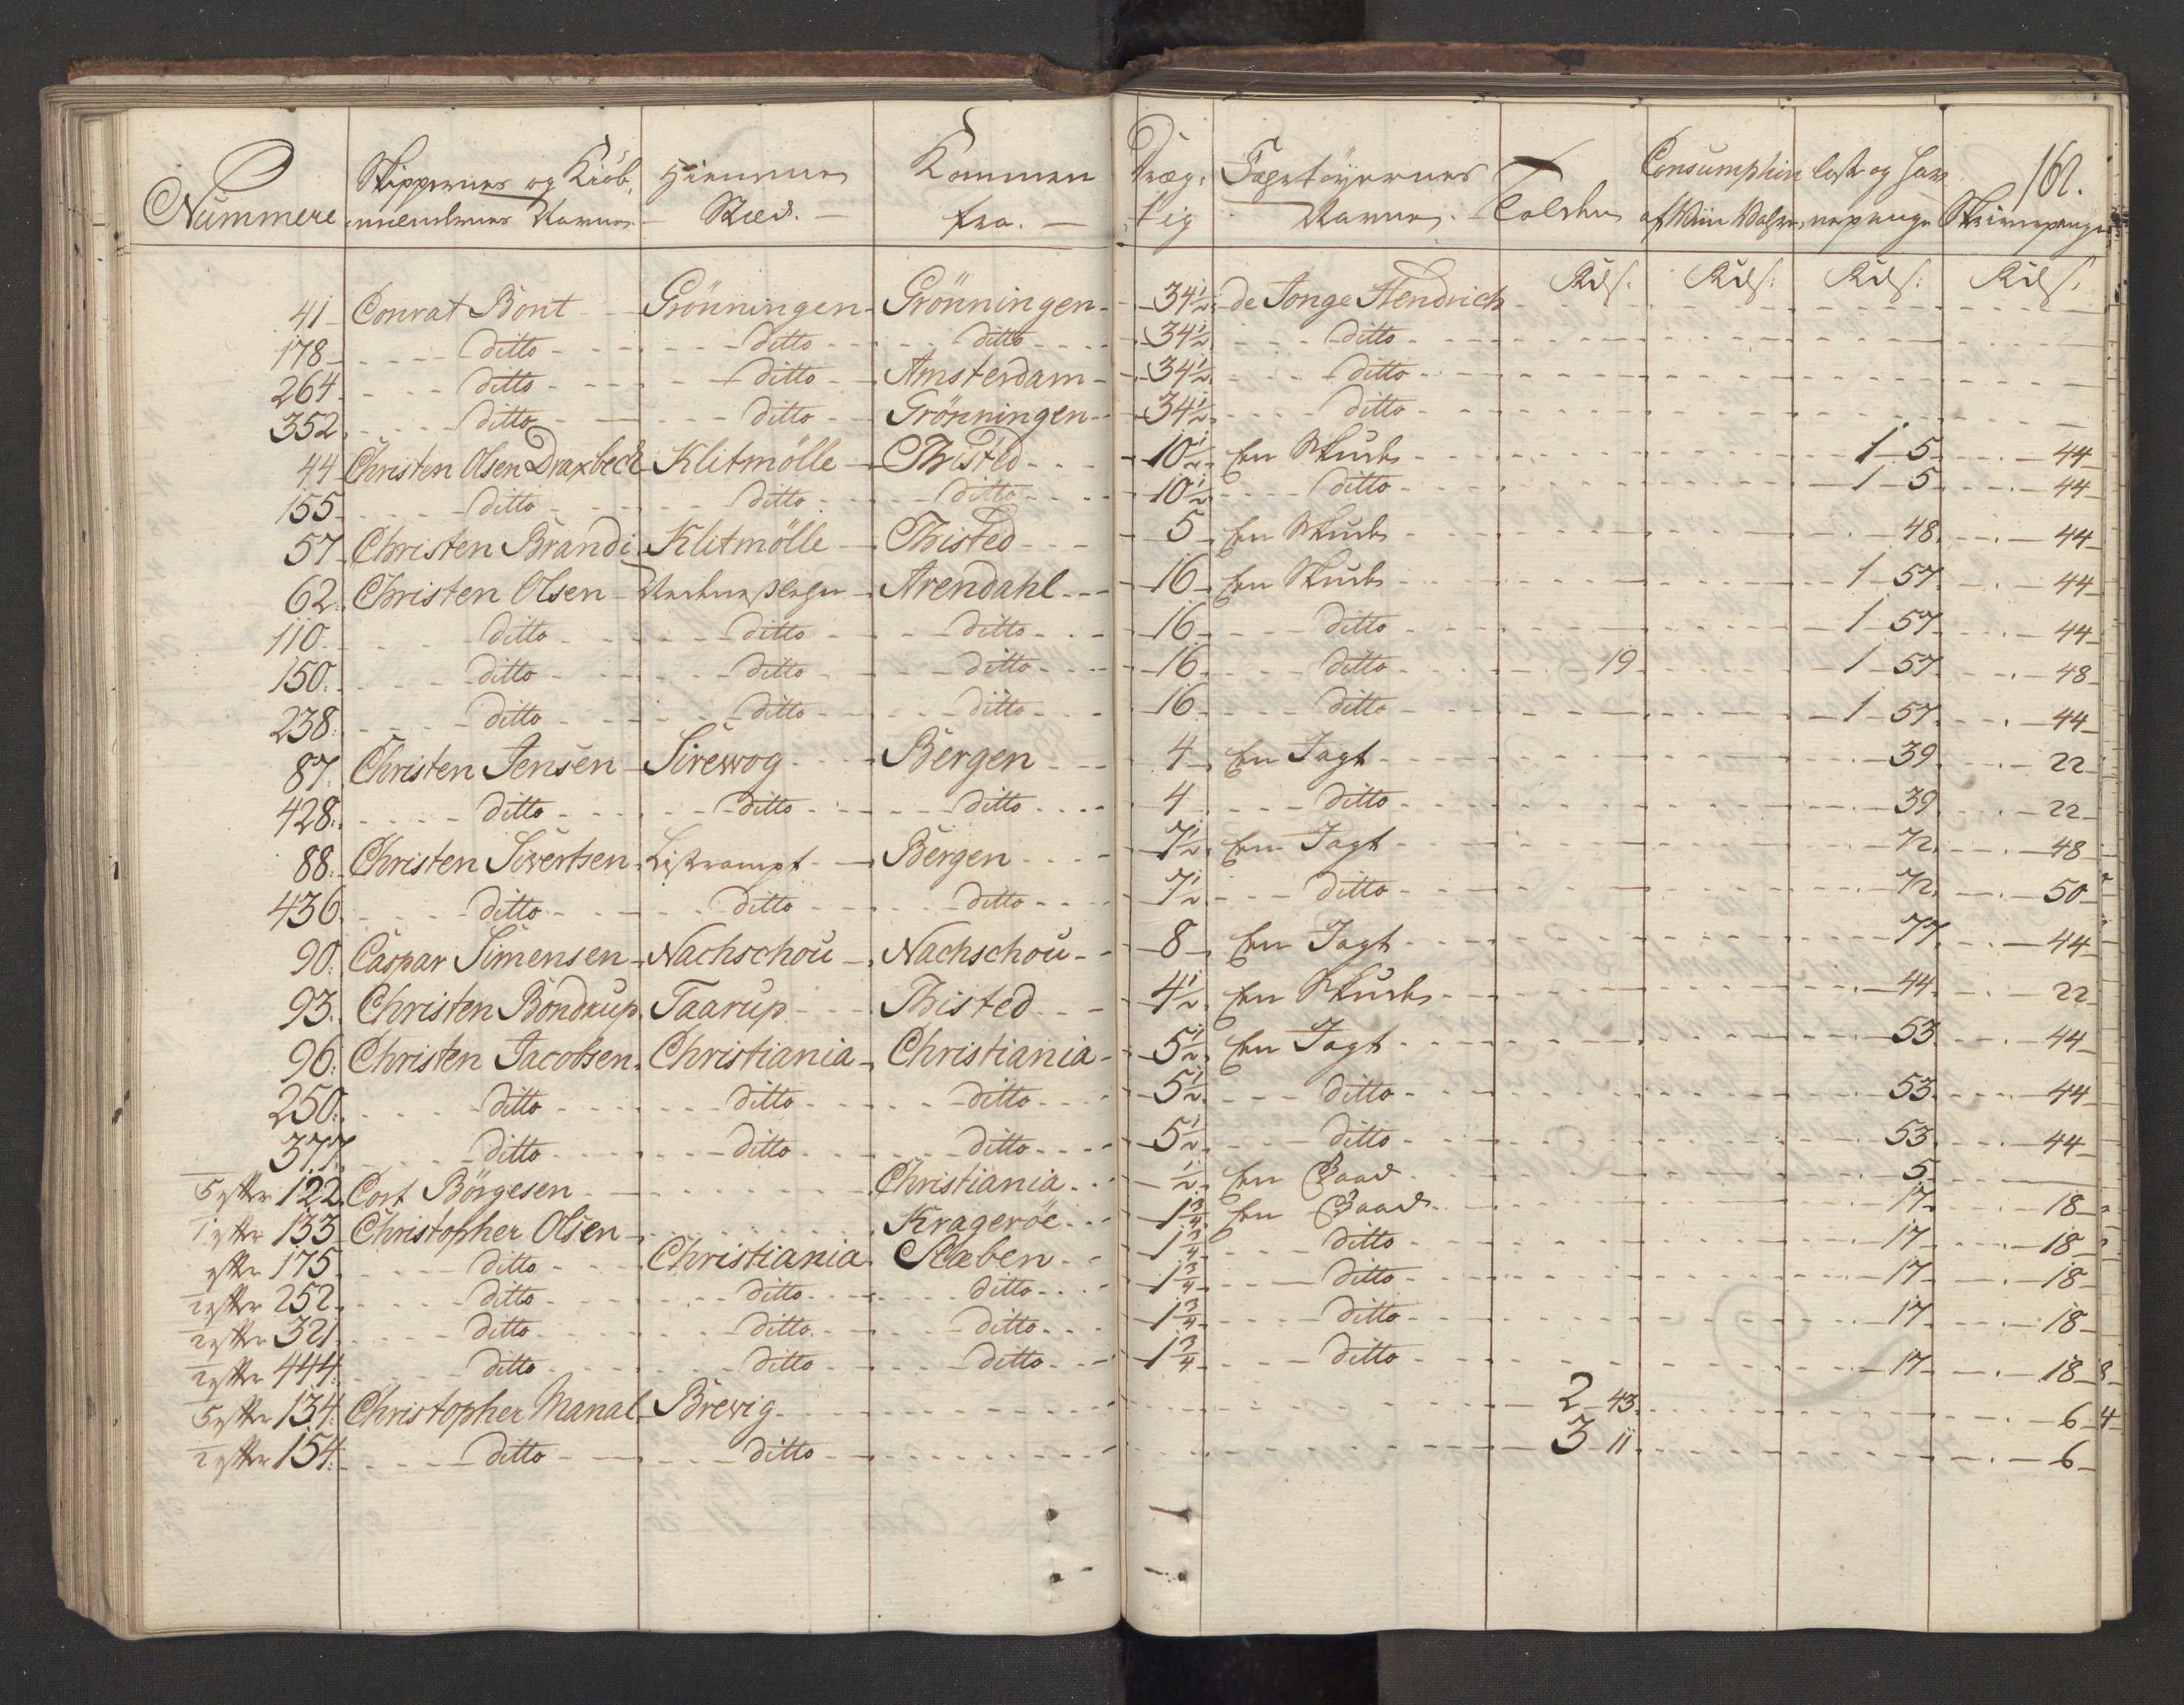 Nummere Skippernes og Kiöb, Hiemme Kommen Dræg, Fartöyernes Consumption last og hav 161.
mændenes Navne. Stæd. fra. tig Navne. Tolden af Viin Vahre, nepenge Skrivepenge
Rdlr: Rdlr: Rdlr: Rdlr:
41 Conrat Bont Grönningen Grönningen 34 1/2 de Jonge Hendrich
178 ditto ditto ditto 34 1/2 ditto
264 ditto ditto Amsterdam 34 1/2 ditto
352 ditto ditto Grönningen 34 1/2 ditto
44 Christen Olsen Draxbeck Klitmölle Thisted 10 1/2 En Skude 1 5 44
155 ditto ditto ditto 10 1/2 ditto 1 5 44
57 Christen Brandi Klitmölle Thisted 5 En Skude 48 44
62 Christen Olsen Arendahl 16 En Skude 1 57 44
110 ditto ditto ditto 16 ditto 1 57 44
150 ditto ditto ditto 16 ditto 19 1 57 48
238 ditto ditto ditto 16 ditto 1 57 44
87 Christen Jensen Sirewog Bergen 4 En Jagt 39 22
428 ditto ditto ditto 4 ditto 39 22
88 Christen Sivertsen Bergen 7 1/2 En Jagt 72 48
436 ditto ditto ditto 7 1/2 ditto 72 50
90 Caspar Simensen Nachschou Nachschou 8 En Jagt 77 44
93 Christen Bondrup Taarup Thisted 4 1/2 En Skude 44 22
96 Christen Jacobsen Christiania Christiania 5 1/2 En Jagt 53 44
250 ditto ditto ditto 5 1/2 ditto 53 44
377 ditto ditto ditto 5 1/2 ditto 53 44
122 Cort Börgesen Christiania 1/2 En Baad 5
133 Christopher Olsen Krageröe 1 3/4 En Baad 17 18
175 ditto Christiania Staben 1 3/4 ditto 17 18
252 ditto ditto ditto 1 3/4 ditto 17 18
321 ditto ditto ditto 1 3/4 ditto 17 18
444 ditto ditto ditto 1 3/4 ditto 17 18
134 Christopher Manal Brevig 2 43 6
154 ditto ditto 3 11 6